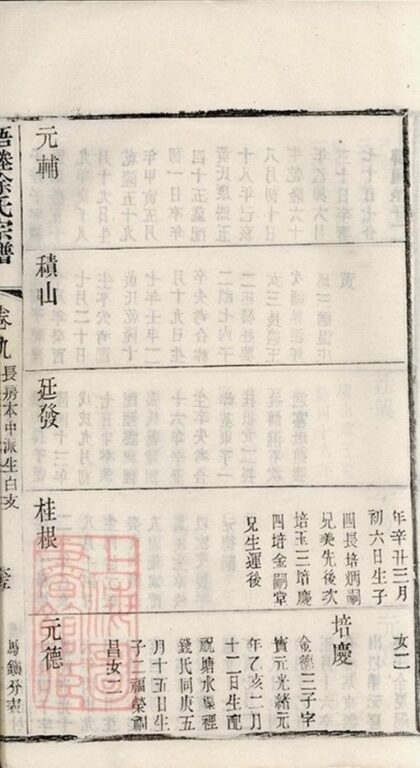 元輔
積山
廷發
年辛丑三月
初六日生子
四長培炳嗣
兄美先後次
培玉三培慶
四培金嗣堂
兄生運後
桂根
女二
培慶
金德三子字
寶元光緒元
年乙亥二月
十二日生配
祝塘水渠裡
錢氏同庚五
月十五日生
子二福榮福
昌女二
元德
梧塍徐氏宗譜
卷九
長房本中派生白支
馬鎮分